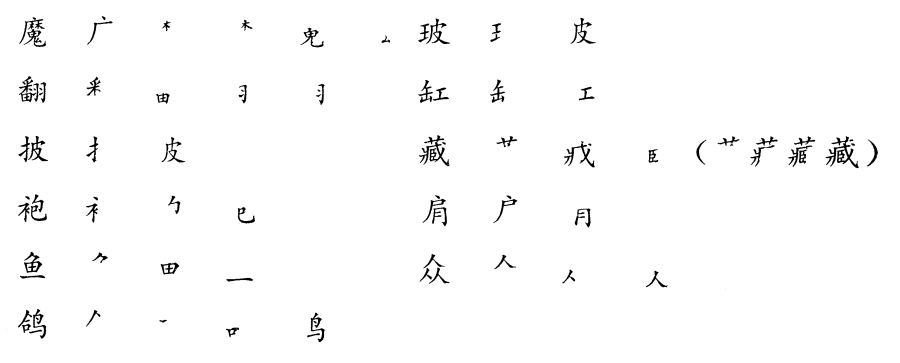 魔 广 木 木 鬼 厶 玻 王 皮
翻 釆 田 习 习 缸 缶 工
披 扌 皮 藏 艹 戕 臣 (艹 藏)
袍 衤 勹 巳 肩 户 月
鱼 ⺈ 田 一 众 人 人 人
鸽 人 一 口 鸟